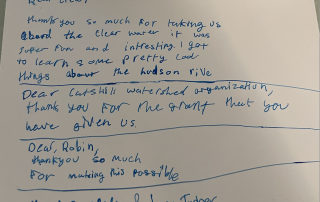 thank you so much for taking us
abord the clear water it was
super fun and intresting I got
to learn some pretty cool
things about the hudson rive
Dear Catskill watershed organization,
thank you for the grant that you
have given us
Dear, Robin,
thankyou so much
for making this possible